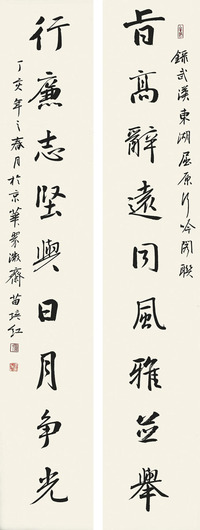 旨高辭遠同風雅並舉
錄武漢東湖屈原行吟閣聯
行廉志堅與日月争光
丁亥年之春月於京華翠微齋苗培红